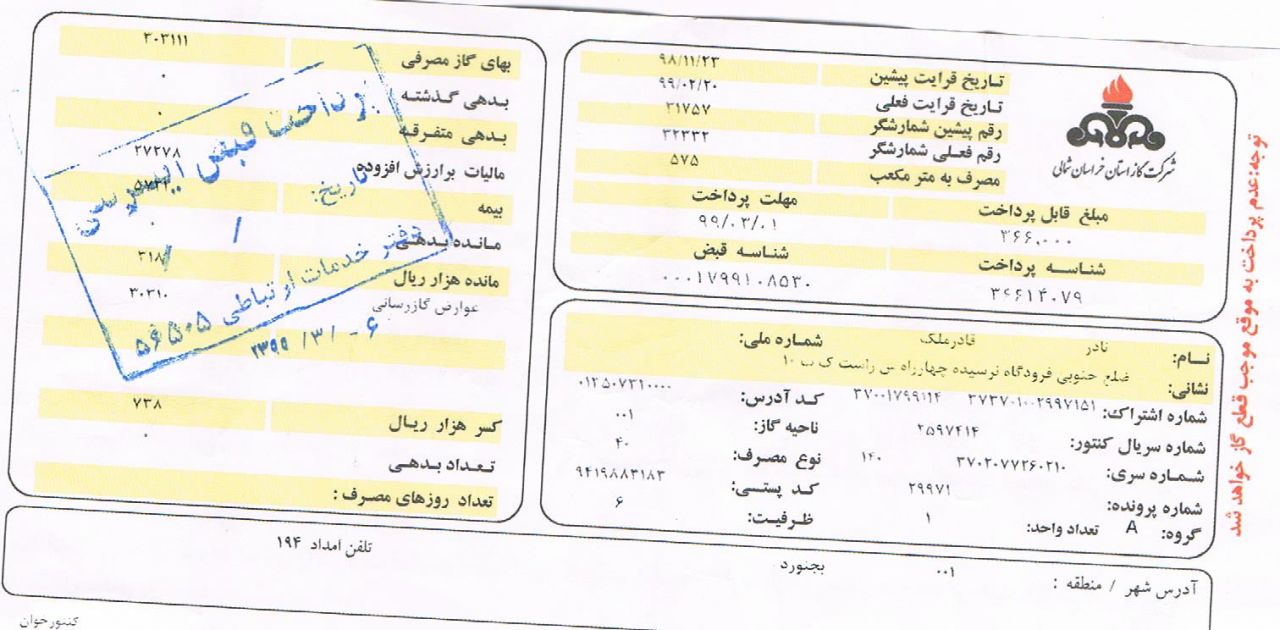 شرکت گاز استان خراسان شمالی
تاریخ قرایت پیشین ۹۸/۱۱/۲۳
تاریخ قرایت فعلی ۹۹/۰۲/۲۰
رقم پیشین شمارشگر ۳۱۷۵۷
رقم فعلی شمارشگر ۳۲۳۳۲
مصرف به متر مکعب ۵۷۵
مبلغ قابل پرداخت مهلت پرداخت
۳۶۶,۰۰۰ ۹۹/۰۳/۰۱
شناسه پرداخت شناسه قبض
۳۶۶۱۴۰۷۹ ۰۰۰۱۷۹۹۱۰۸۵۳۰
نام: نادر قادرملک شماره ملی:
نشانی: ضلع جنوبی فرودگاه نرسیده چهارراه س راست ک ب ۱۰
شماره اشتراک: ۳۷۳۷۰۱۰۰۲۹۹۷۱۵۱ ۳۷۰۰۱۷۹۹۱۱۴ کد آدرس: ۰۱۳۵۰۷۳۱۰۰۰۰
شماره سریال کنتور: ۲۵۹۷۴۱۴ ناحیه گاز: ۰۰۱
شماره سری: ۳۷۰۲۰۷۷۲۶۰۲۱۰ ۱۴۰ نوع مصرف: ۴۰
شماره پرونده: ۲۹۹۷۱ کد پستی: ۹۴۱۹۸۸۳۱۸۳
گروه: A تعداد واحد: ۱ ظرفیت: ۶
توجه:عدم پرداخت به موقع موجب قطع گاز خواهد شد
بهای گاز مصرفی ۳۰۳۱۱۱
بدهی گذشته ۰
بدهی متفرقه ۰
مالیات برارزش افزوده ۲۷۲۷۸
بیمه
مانده بدهی ۰
مانده هزار ریال ۳۱۸
عوارض گازرسانی ۳۰۳۱۰
کسر هزار ریال ۷۳۸
تعداد بدهی ۰
تعداد روزهای مصرف :
پرداخت قبض
تاریخ: / /
دفتر خدمات ارتباطی ۵۶۵۰۵
۱۳۹۹ /۳/ -۶
آدرس شهر / منطقه : ۰۰۱ بجنورد
تلفن امداد ۱۹۴
کنتورخوان